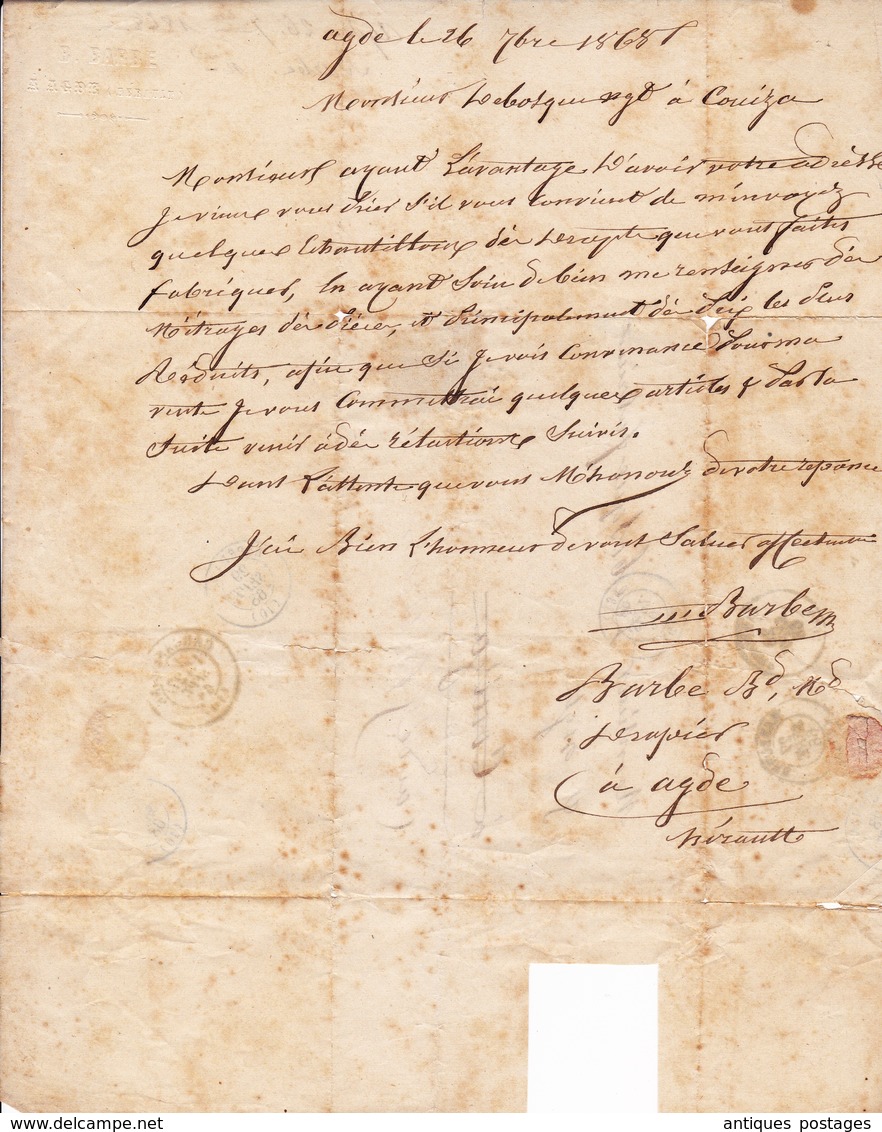 B. BARBE
A AGDE (HÉRAULT)
agde le 26 7bre 1868
Monsieur Debosque ngt à Couiza
Monsieur ayant L'avantage D'avoir votre adresse
Je viens vous Prier s'il vous convient de m'invoyez
quelques Echantillons dés Draps que vous faites
fabriquer, En ayant Soin de bien me renseigner dés
Métrages dés Pièces, et Principalement dés Prix les plus
Réduits, afin que Si Je vois Convenance Pour ma
vente Je vous Commettrai quelques articles & Par la
Suite venir à dés rélations Suivis.
Dans L'attente que vous M'honorez de votre reponse
J'ai Bien L'honneur de vous Saluer
Barbe
Barbe Bd,
Drapier
à agde
hérault
antiques postages